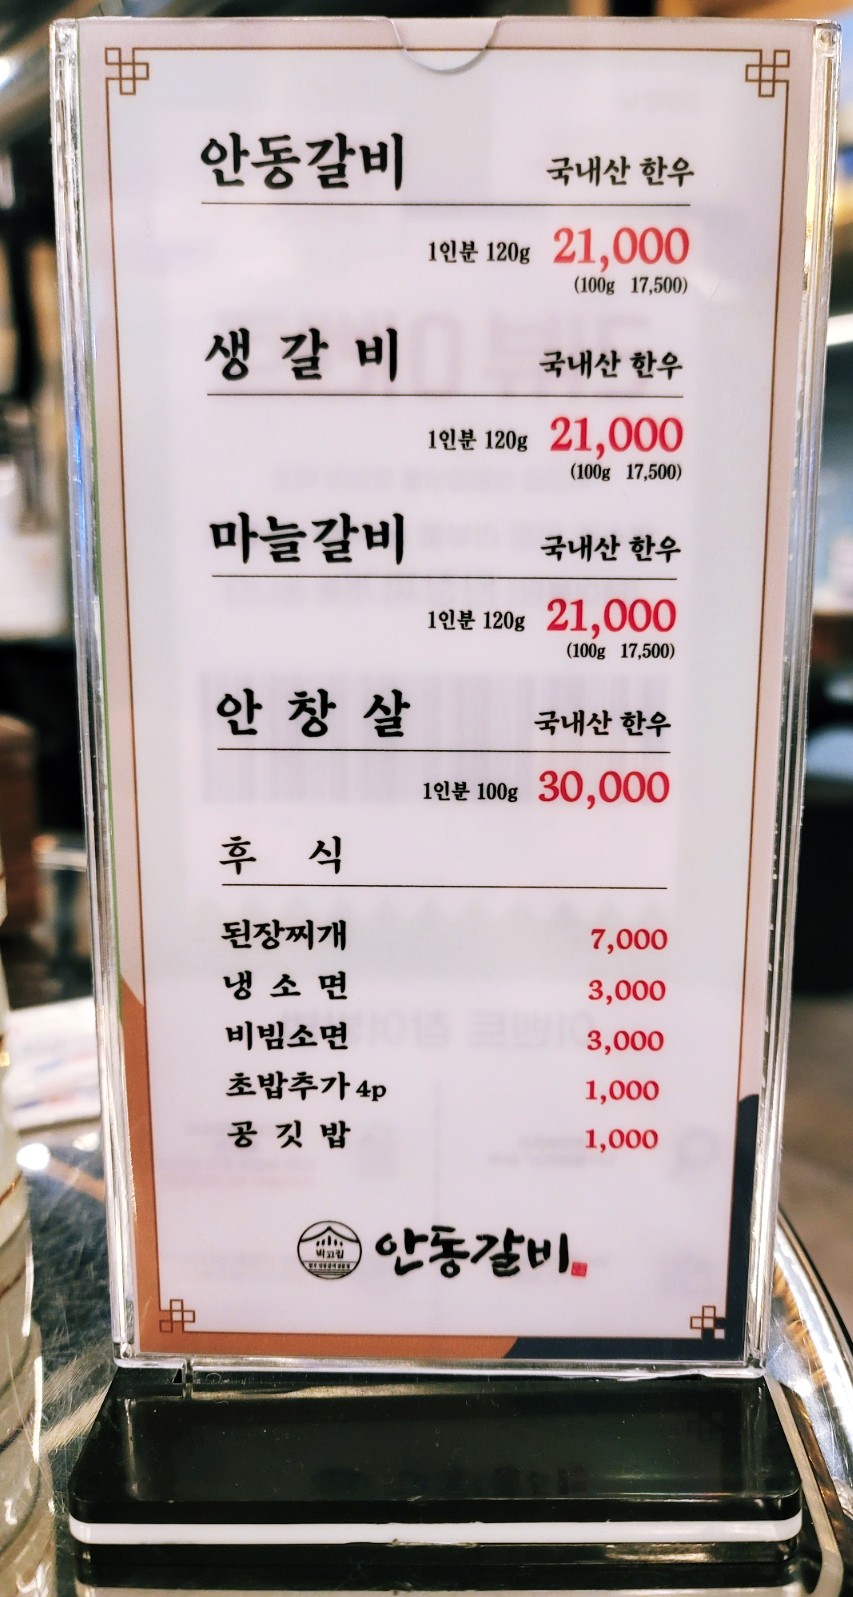 안동갈비 국내산 한우
1인분 120g 21,000
(100g 17,500)
생갈비 국내산 한우
1인분 120g 21,000
(100g 17,500)
마늘갈비 국내산 한우
1인분 120g 21,000
(100g 17,500)
안창살 국내산 한우
1인분 100g 30,000
후식
된장찌개 7,000
냉소면 3,000
비빔소면 3,000
초밥추가 4p 1,000
공깃밥 1,000
박고집
안동갈비